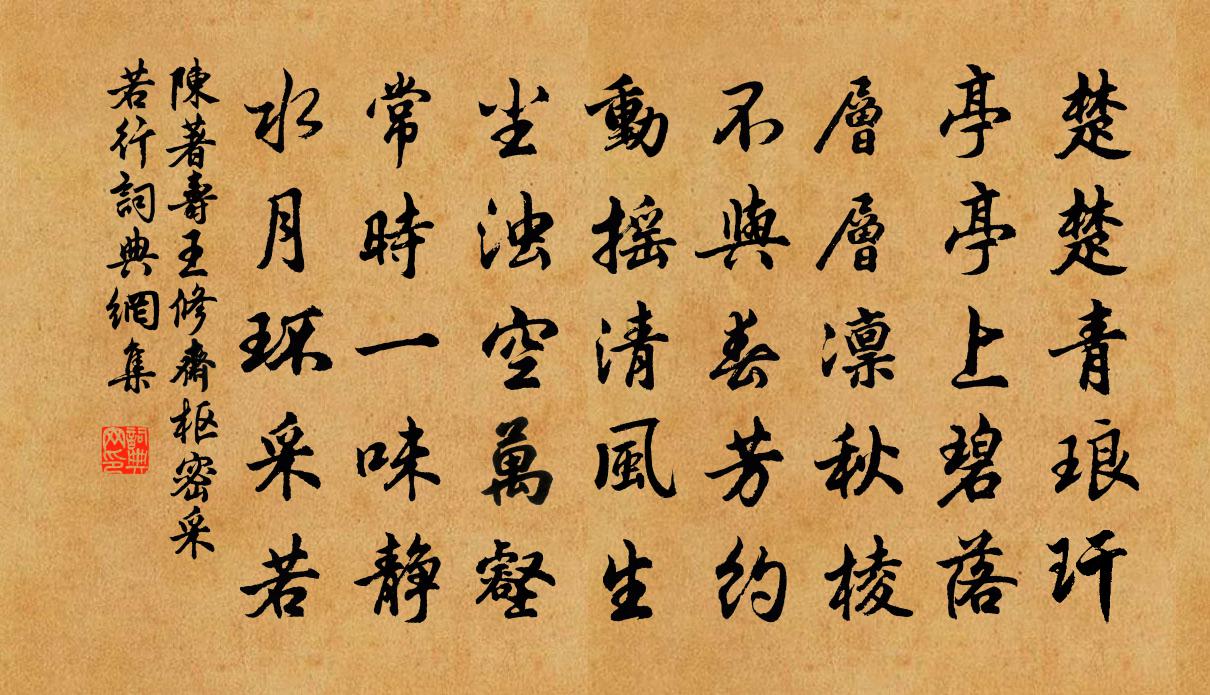 楚楚青琅玕
亭亭上碧落
層層凛秋棱
不與春芳約
動摇清風生
尘浊空萬壑
常時一味静
水月环采若
陳著壽王修齋枢密采
若行詞典網集
詞典网印